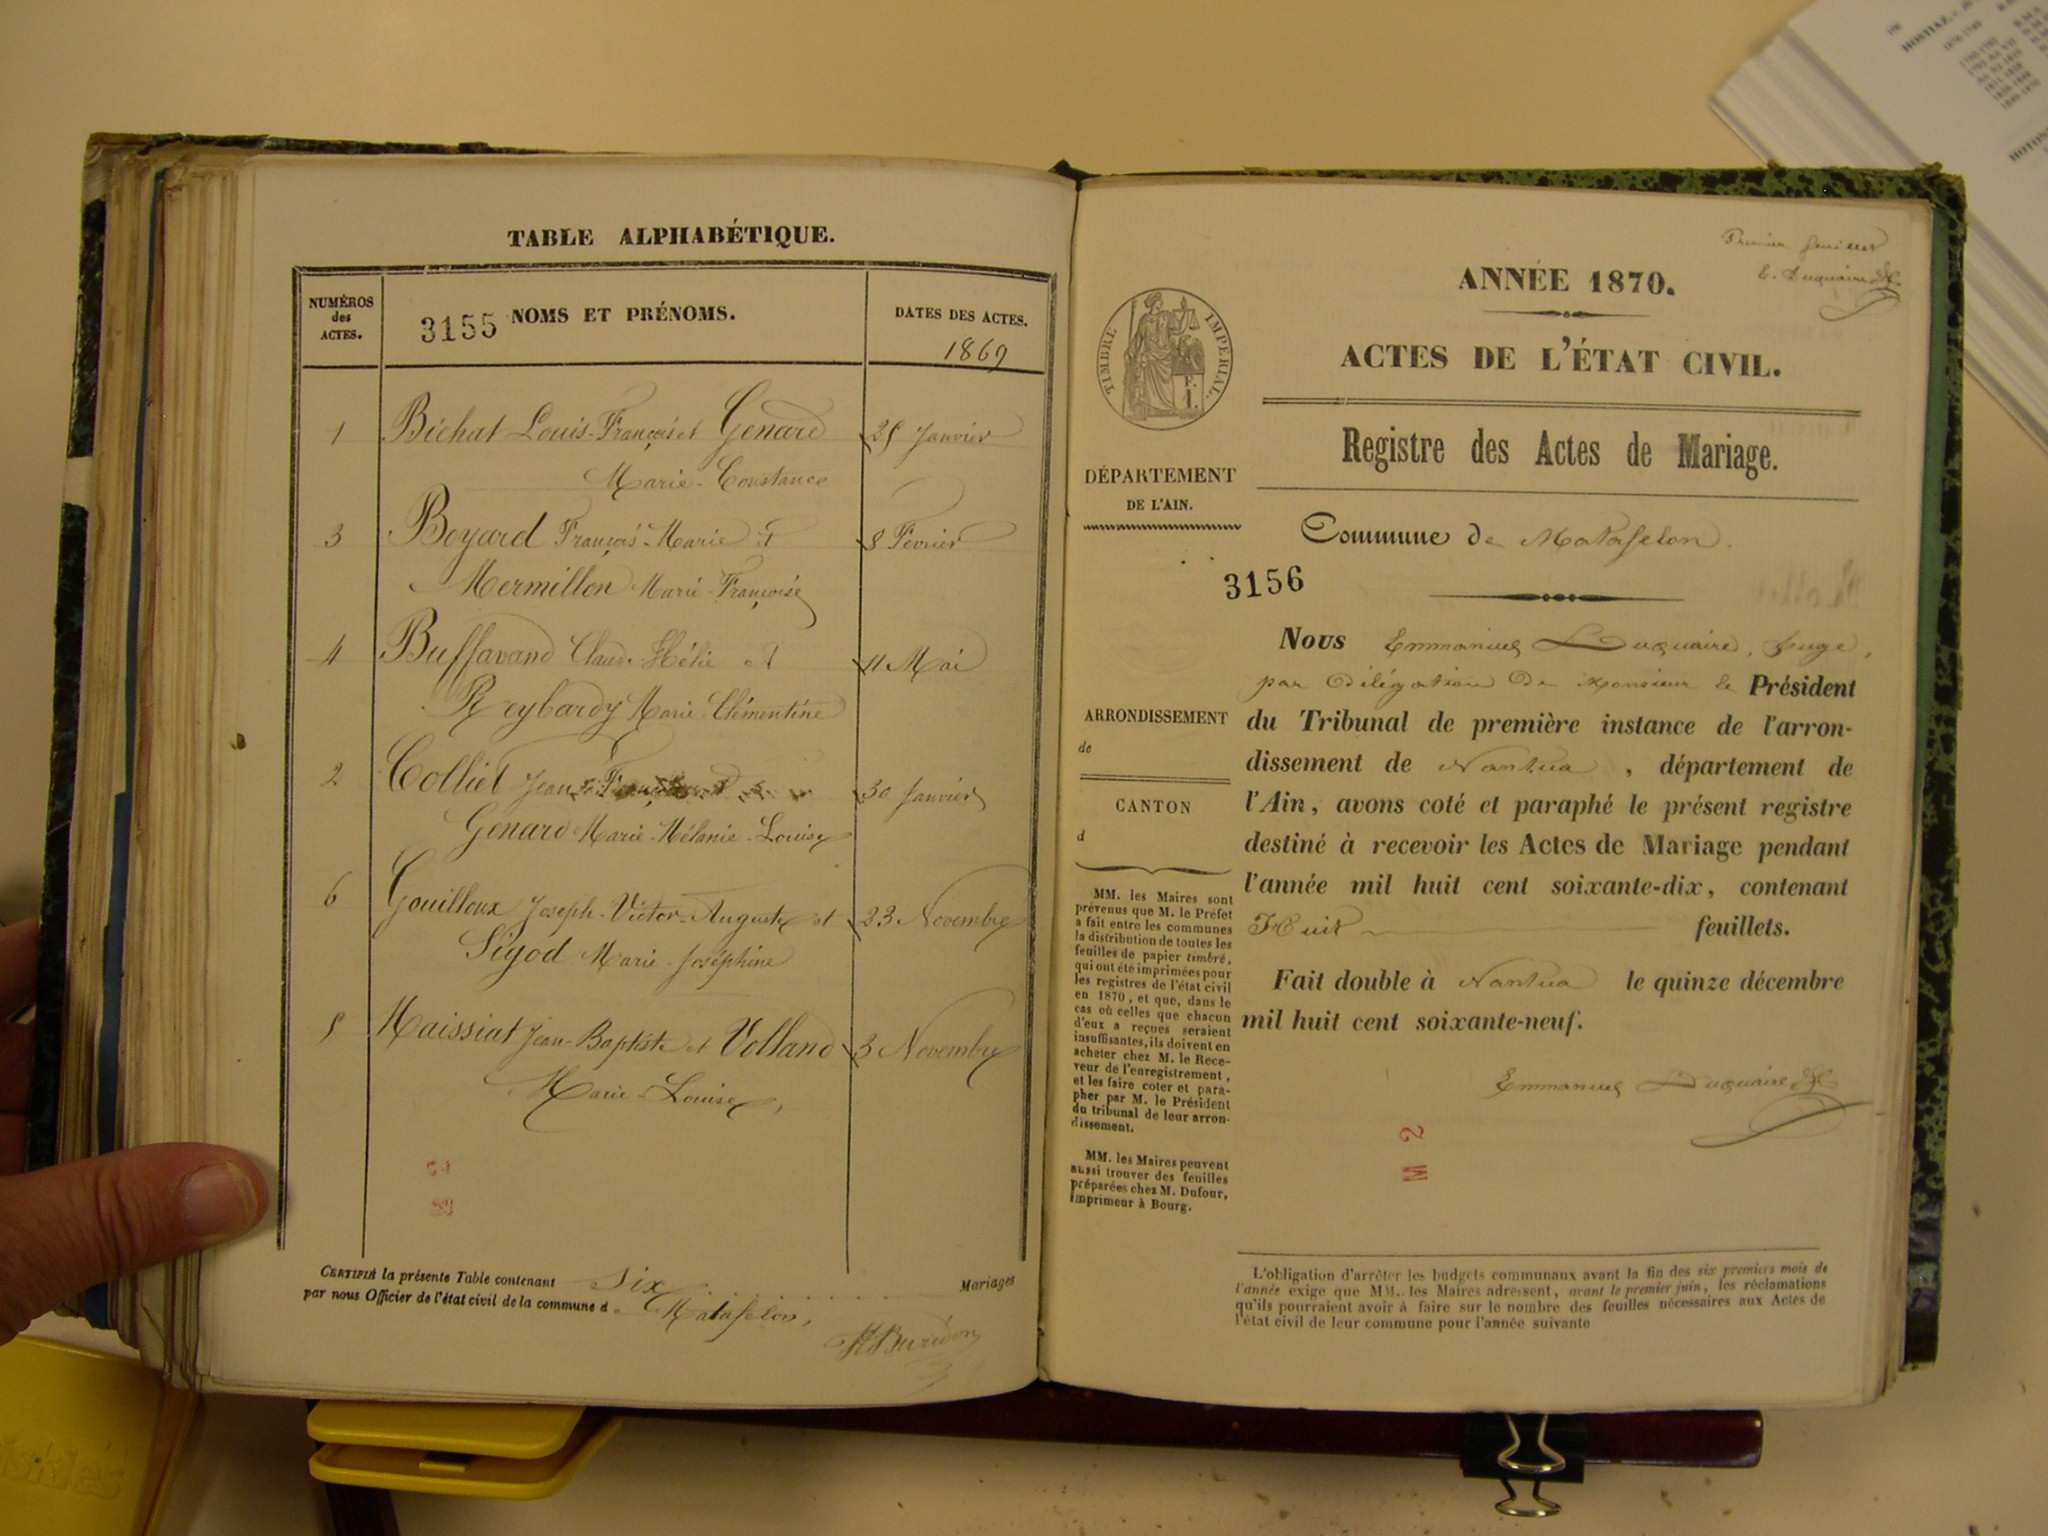 TABLE ALPHABÉTIQUE.
NUMÉROS
des
ACTES.
3155 NOMS ET PRÉNOMS.
DATES DES ACTES.
1869
1 Bichat Louis-François et Genard 25 Janvier
Marie-Constance
3 Boyard François-Marie et 8 Février
Mermillon Marie-Françoise
4 Buffavand Claude Hélie et 11 Mai
Reybardy Marie Clémentine
2 Colliet Jean 30 Janvier
Genard Marie-Mélanie-Louise
6 Gouilloux Joseph-Victor-Auguste et 23 Novembre
Sigod Marie-Joséphine
5 Maissiat Jean-Baptiste et Volland 3 Novembre
Marie-Louise,
CERTIFIÉ la présente Table contenant Six Mariages
par nous Officier de l'état civil de la commune de Matafelon,
Premier feuillet
E. Duquaire
ANNÉE 1870.
ACTES DE L'ÉTAT CIVIL.
TIMBRE IMPERIAL.
F.
1.
Registre des Actes de Mariage.
DÉPARTEMENT
DE L'AIN.
Commune de Matafelon.
3156
ARRONDISSEMENT
de
CANTON
d
Nous Emmanuel Duquaire, Juge,
par délégation de Monsieur le Président
du Tribunal de première instance de l'arron-
dissement de Nantua, département de
l'Ain, avons coté et paraphé le présent registre
destiné à recevoir les Actes de Mariage pendant
l'année mil huit cent soixante-dix, contenant
Huit feuillets.
Fait double à Nantua le quinze décembre
mil huit cent soixante-neuf.
Emmanuel Duquaire
M 2
MM. les Maires sont
prévenus que M. le Préfet
a fait entre les communes
la distribution de toutes les
feuilles de papier timbré,
qui ont été imprimées pour
les registres de l'état civil
en 1870, et que, dans le
cas où celles que chacun
d'eux a reçues seraient
insuffisantes, ils doivent en
acheter chez M. le Rece-
veur de l'enregistrement,
et les faire coter et para-
pher par M. le Président
du tribunal de leur arron-
dissement.
MM. les Maires peuvent
aussi trouver des feuilles
préparées chez M. Dufour,
imprimeur à Bourg.
L'obligation d'arrêter les budgets communaux avant la fin des six premiers mois de
l'année exige que MM. les Maires adressent, avant le premier juin, les réclamations
qu'ils pourraient avoir à faire sur le nombre des feuilles nécessaires aux Actes de
l'état civil de leur commune pour l'année suivante